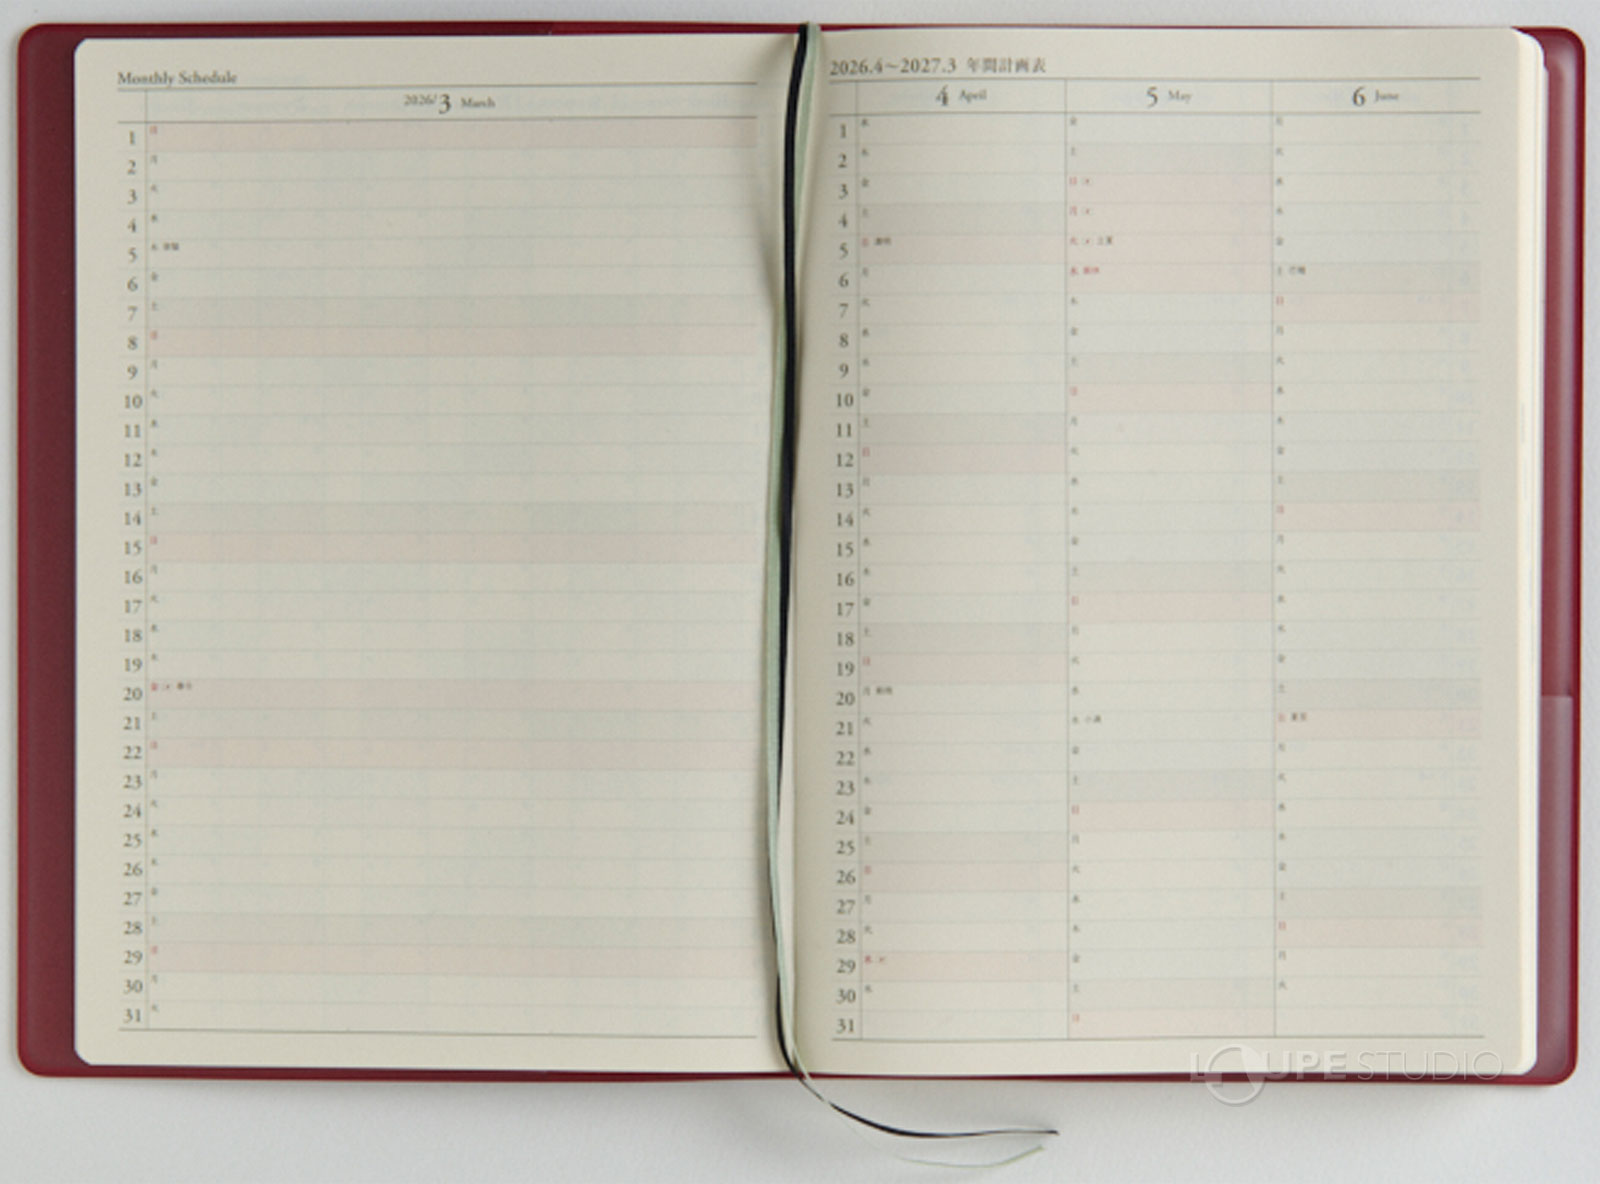 Monthly Schedule
2026/3 March
1 日
2 月
3 火
4 水
5 木 啓蟄
6 金
7 土
8 日
9 月
10 火
11 水
12 木
13 金
14 土
15 日
16 月
17 火
18 水
19 木
20 金 春分
21 土
22 日
23 月
24 火
25 水
26 木
27 金
28 土
29 日
30 月
31 火
2026.4~2027.3 年間計画表
4 April 5 May 6 June
1 水 金 月
2 木 土 火
3 金 日 水
4 土 月 木
5 日 清明 火 立夏 金
6 月 水 振休 土 芒種
7 火 木 日
8 水 金 月
9 木 土 火
10 金 日 水
11 土 月 木
12 日 火 金
13 月 水 土
14 火 木 日
15 水 金 月
16 木 土 火
17 金 日 水
18 土 月 木
19 日 火 金
20 月 穀雨 水 土
21 火 木 小満 日 夏至
22 水 金 月
23 木 土 火
24 金 日 水
25 土 月 木
26 日 火 金
27 月 水 土
28 火 木 日
29 水 金 月
30 木 土 火
31 日
LOUPE STUDIO